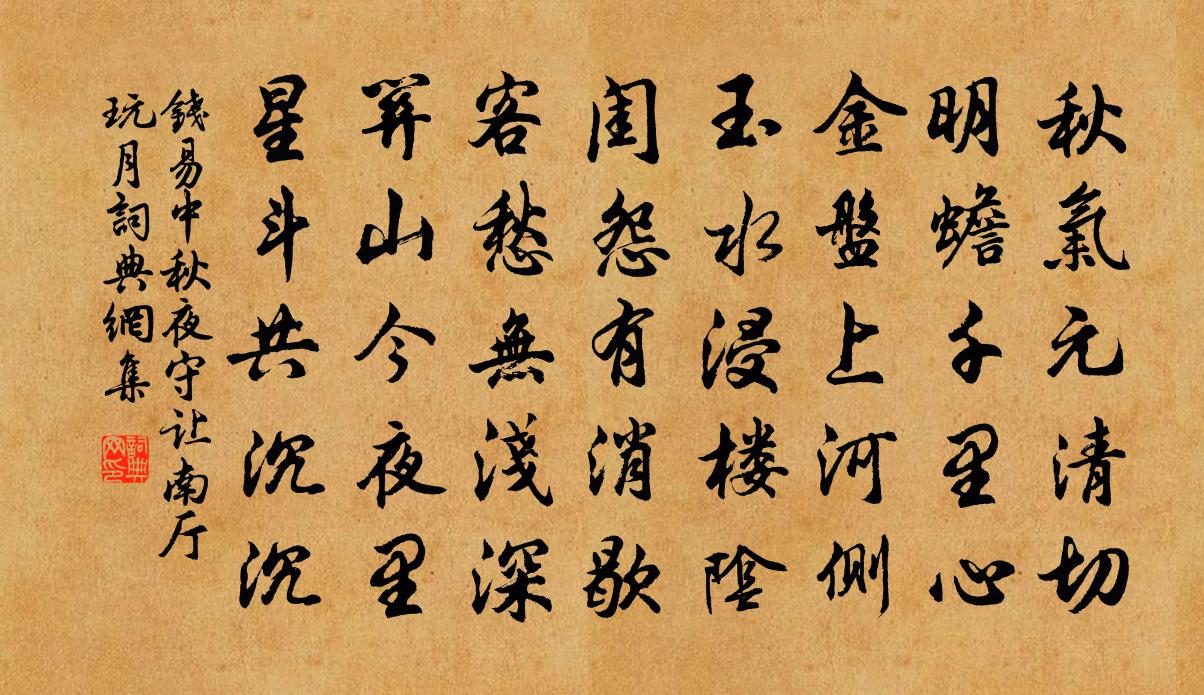 秋氣元清切
明蟾千里心
金盤上河側
玉水浸楼陰
閨怨有消歇
客愁無淺深
関山今夜里
星斗共沉沉
錢易中秋夜守让南厅
玩月詞典網集
詞典网印